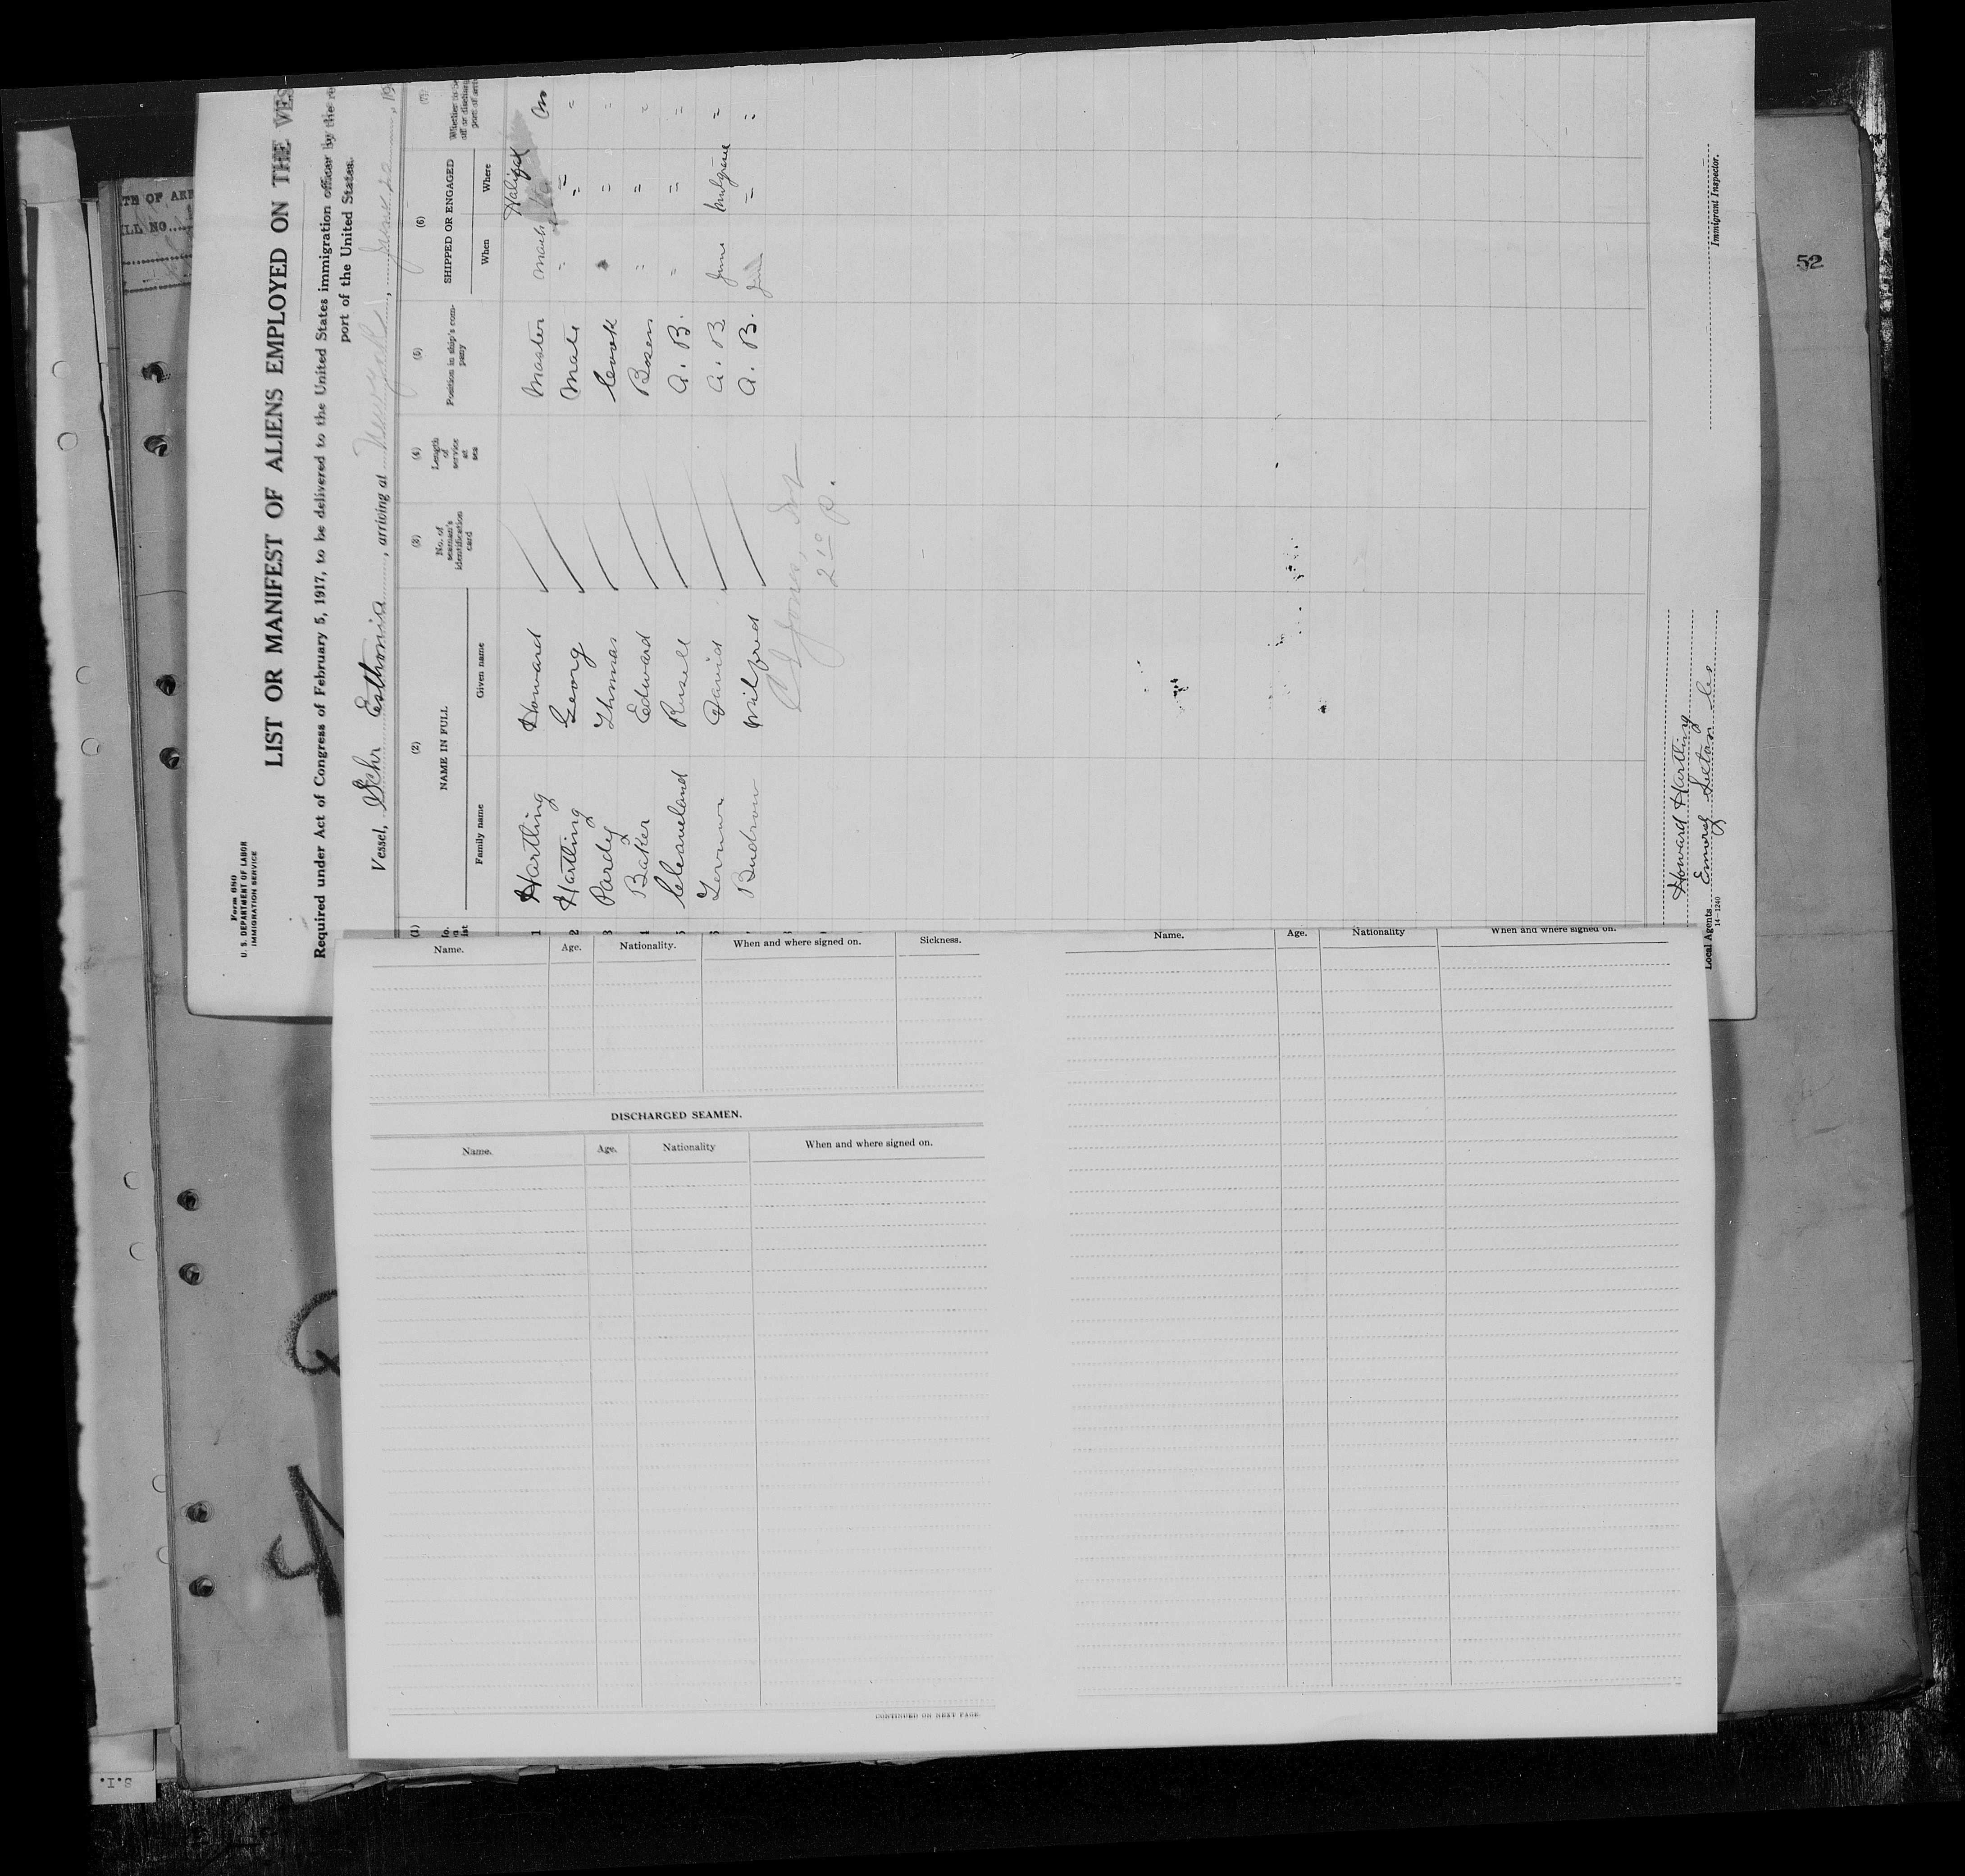 Form 680
U. S. DEPARTMENT OF LABOR
IMMIGRATION SERVICE
LIST OR MANIFEST OF ALIENS EMPLOYED ON THE VES
Required under Act of Congress of February 5, 1917, to be delivered to the United States immigration officer by the re
port of the United States.
Vessel, Schr Esthonia, arriving at New York, June 22, 19
(1) (2) (3) (4) (5) (6) (7)
NAME IN FULL
No. of seaman's identification card
Length of service at sea
Position in ship's company
SHIPPED OR ENGAGED
Family name Given name When Where
1 Hartling Howard Master March Halifax No
2 Hartling Georg Mate = = =
3 Pardy Thomas Cook = =
4 Baker Edward Bosen = = =
5 Cleaveland Rusell A. B. = = =
6 David A. B June =
7 Wilfred A. B. June = =
Howard Hartling
Local Agents Emory Sexton Co
14-1240
Immigrant Inspector.
Name. Age. Nationality. When and where signed on. Sickness.
DISCHARGED SEAMEN.
Name. Age. Nationality When and where signed on.
CONTINUED ON NEXT PAGE.
Name. Age. Nationality When and where signed on.
52
TE OF ARR
ILL NO
S.I.